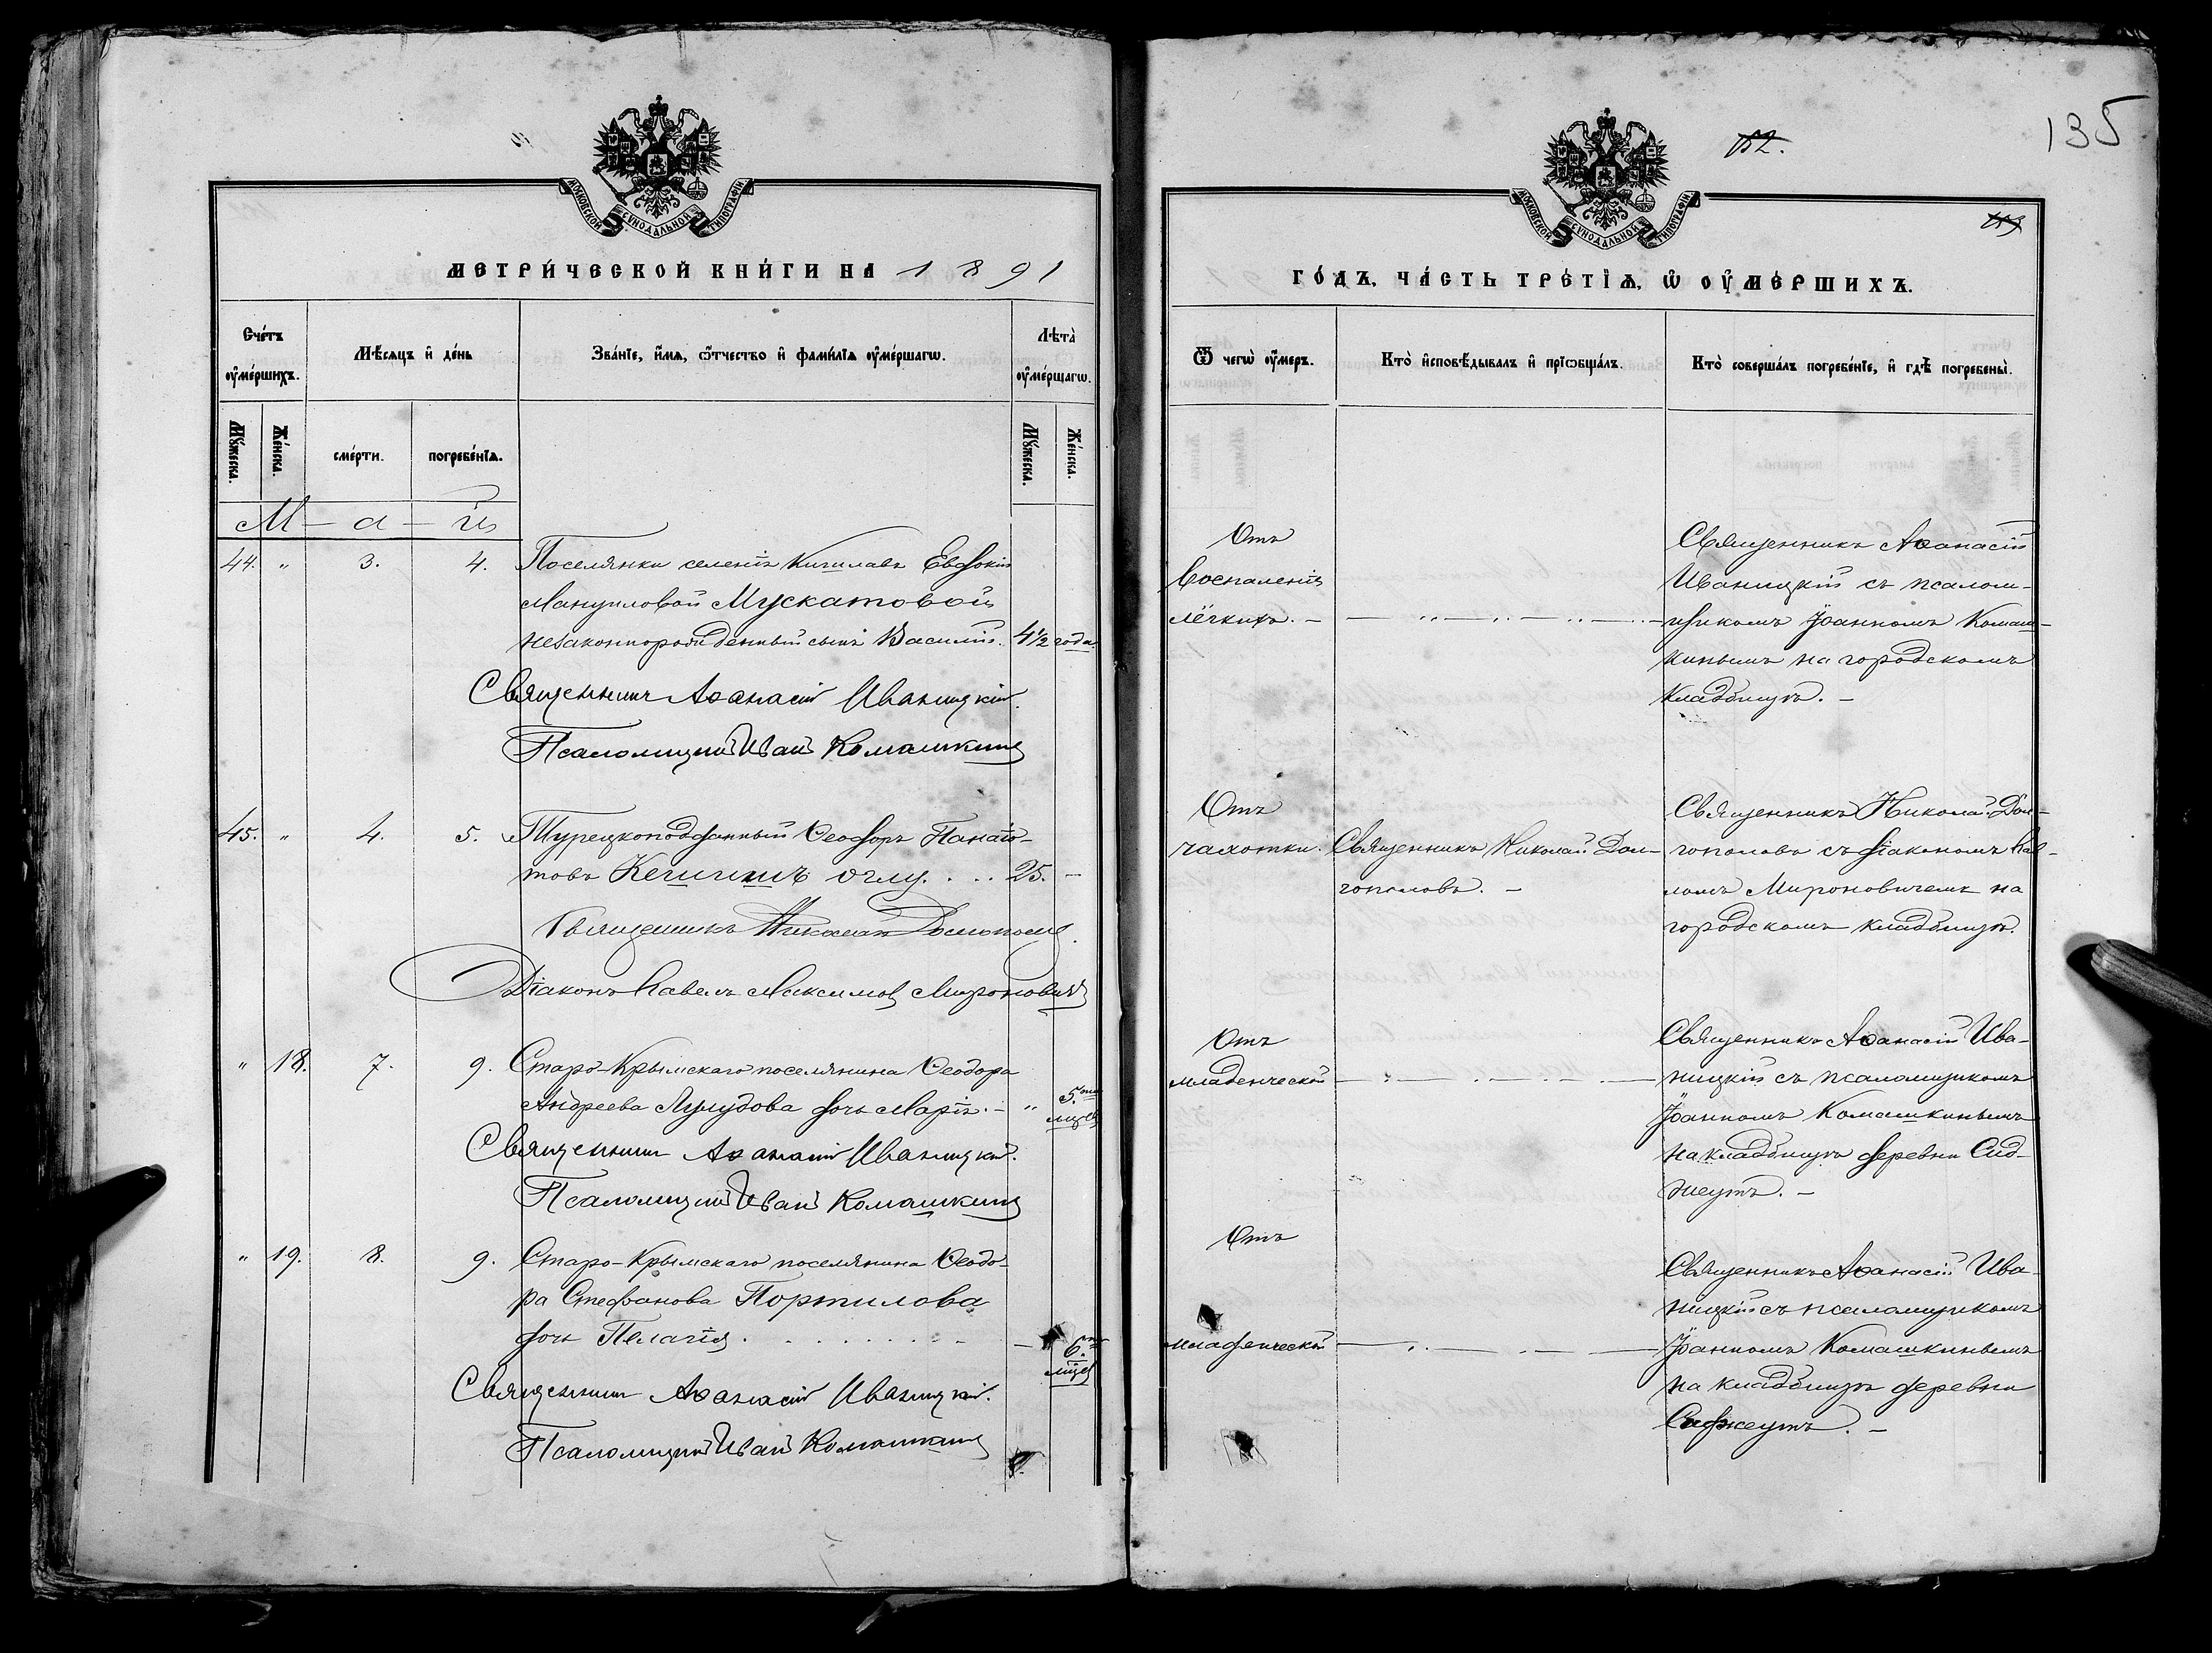 135
МОСКОВСКОЙ СѴНОДАЛЬНОЙ ТИПОГРАФІИ
МОСКОВСКОЙ СѴНОДАЛЬНОЙ ТИПОГРАФІИ
МЕТРИ́ЧЕСКОЙ КНИ́ГИ НА 1891
Счéтъ ᲂу҆мéршихъ.
Мѣ́сяцъ и҆ дéнь
Звáнїе, и҆́мя, ѻ҆́тчество и҆ фамѝлїя ᲂу҆мéршагѡ.
Лѣтà ᲂу҆мéршагѡ.
Мꙋ́жеска.
Жéнска.
смéрти.
погребéнїя.
Мꙋ́жеска.
Жéнска.
М – а – й
44. " 3. 4. Поселянки селенія Кишлавъ Евдокіи
Мануиловой Мускатовой
незаконнорожденный сынъ Василій. 4½ года.
Священникъ Аѳанасій Иваницкій.
Псаломщикъ Иванъ Комашкинъ
45. " 4. 5. Турецкоподданный Ѳеодоръ Панаіо-
товъ Кешишъ оглу. . . . 25. –
Священникъ Николай Долгополовъ.
Діаконъ Павелъ Максимовъ Мироновичъ
" 18. 7. 9. Старо-Крымскаго поселянина Ѳеодора
Андреева Лулудова дочь Марія. – " 5ти
мцевъ
Священникъ Аѳанасій Иваницкій.
Псаломщикъ Иванъ Комашкинъ
" 19. 8. 9. Старо-Крымскаго поселянина Ѳеодо-
ра Стефанова Портилова
дочь Пелагія. – " 6ти
мцевъ
Священникъ Аѳанасій Иваницкій.
Псаломщикъ Иванъ Комашкинъ
ГО́ДЪ, ЧА́СТЬ ТРЕ́ТЇЯ, Ѡ҆ ОУ҆МЕ́РШИХЪ.
Ѿ чегѡ̀ ᲂу҆́меръ.
Ктò и҆сповѣ́дывалъ и҆ прїѡбщáлъ.
Ктò совершáлъ погребéнїе, и҆ гдѣ̀ погребены̀.
Отъ
воспаленія
лёгкихъ. –
Священникъ Аѳанасій
Иваницкій съ псалом-
щикомъ Іоанномъ Комаш-
кинымъ на городскомъ
кладбищѣ. –
Отъ
чахотки.
Священникъ Николай Дол-
гополовъ. –
Священникъ Николай Дол-
гополовъ съ діакономъ Пав-
ломъ Мироновичемъ на
городскомъ кладбищѣ.
Отъ
младенческой
Священникъ Аѳанасій Ива-
ницкій съ псаломщикомъ
Іоанномъ Комашкинымъ
на кладбищѣ деревни Сид-
жеутъ. –
Отъ
младенческой
Священникъ Аѳанасій Ива-
ницкій съ псаломщикомъ
Іоанномъ Комашкинымъ
на кладбищѣ деревни
Сиджеутъ. –